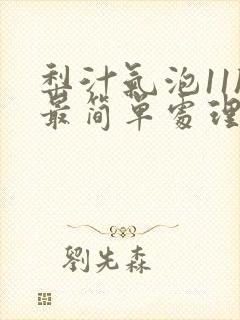 梨汁氣泡11M
最简單處理
劉先森